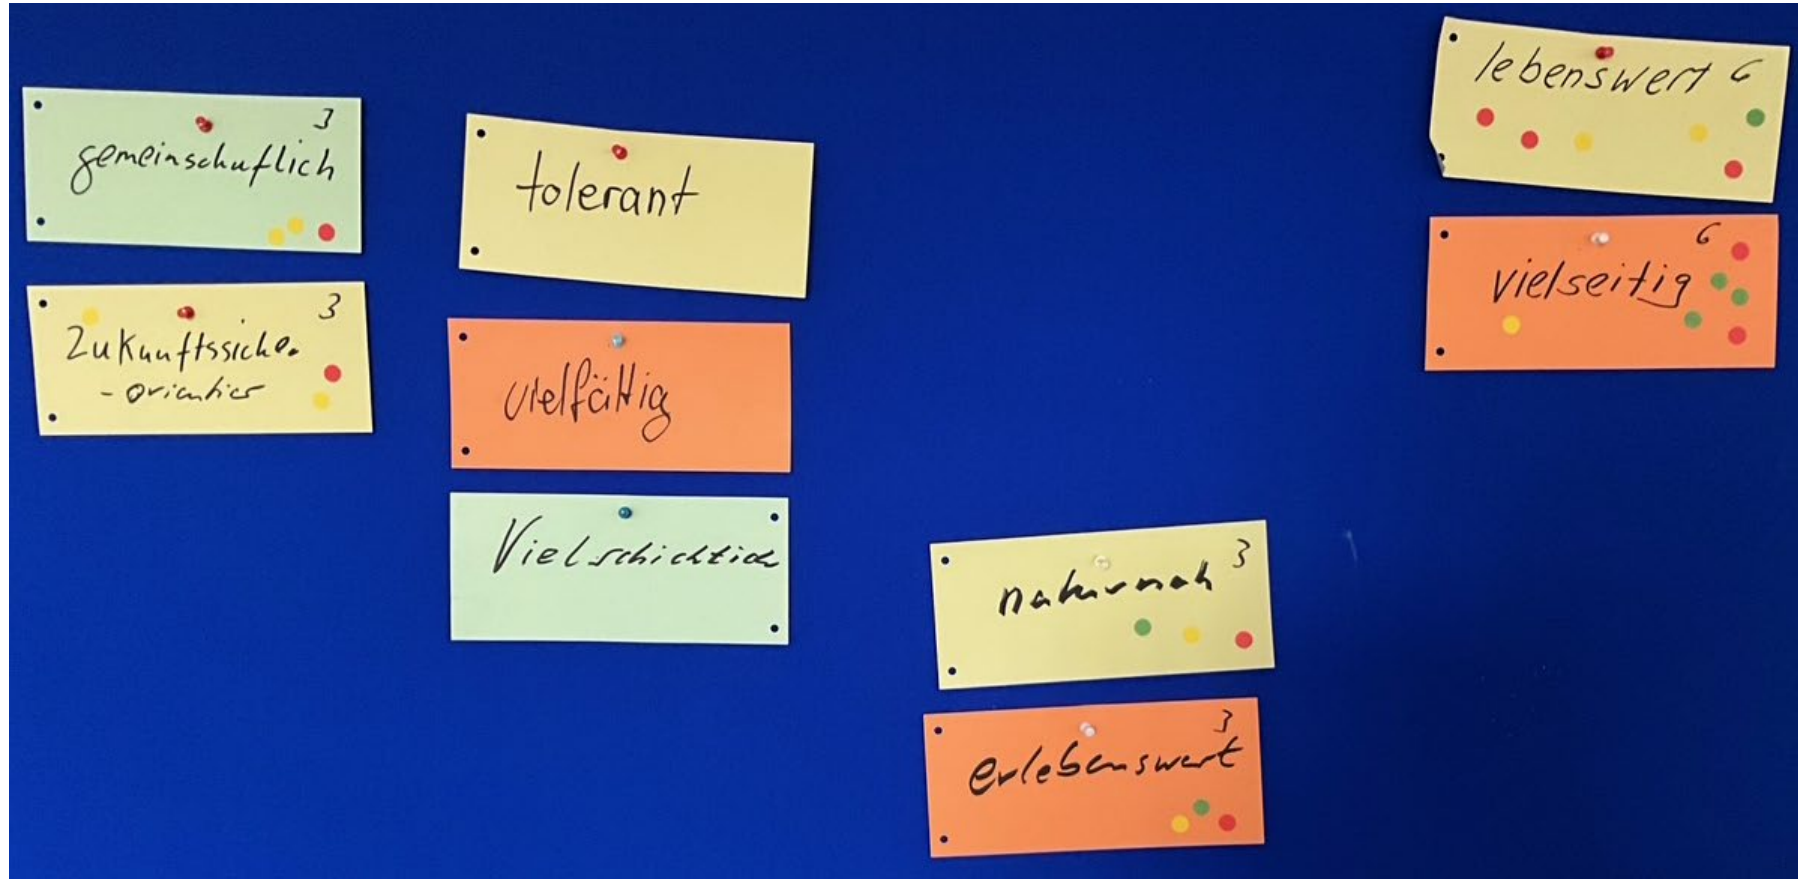 3
gemeinschaftlich
3
Zukunftssicher
- orientier
tolerant
vielfältig
Vielschichtich
naturnah 3
3
erlebenswert
lebenswert 6
6
vielseitig